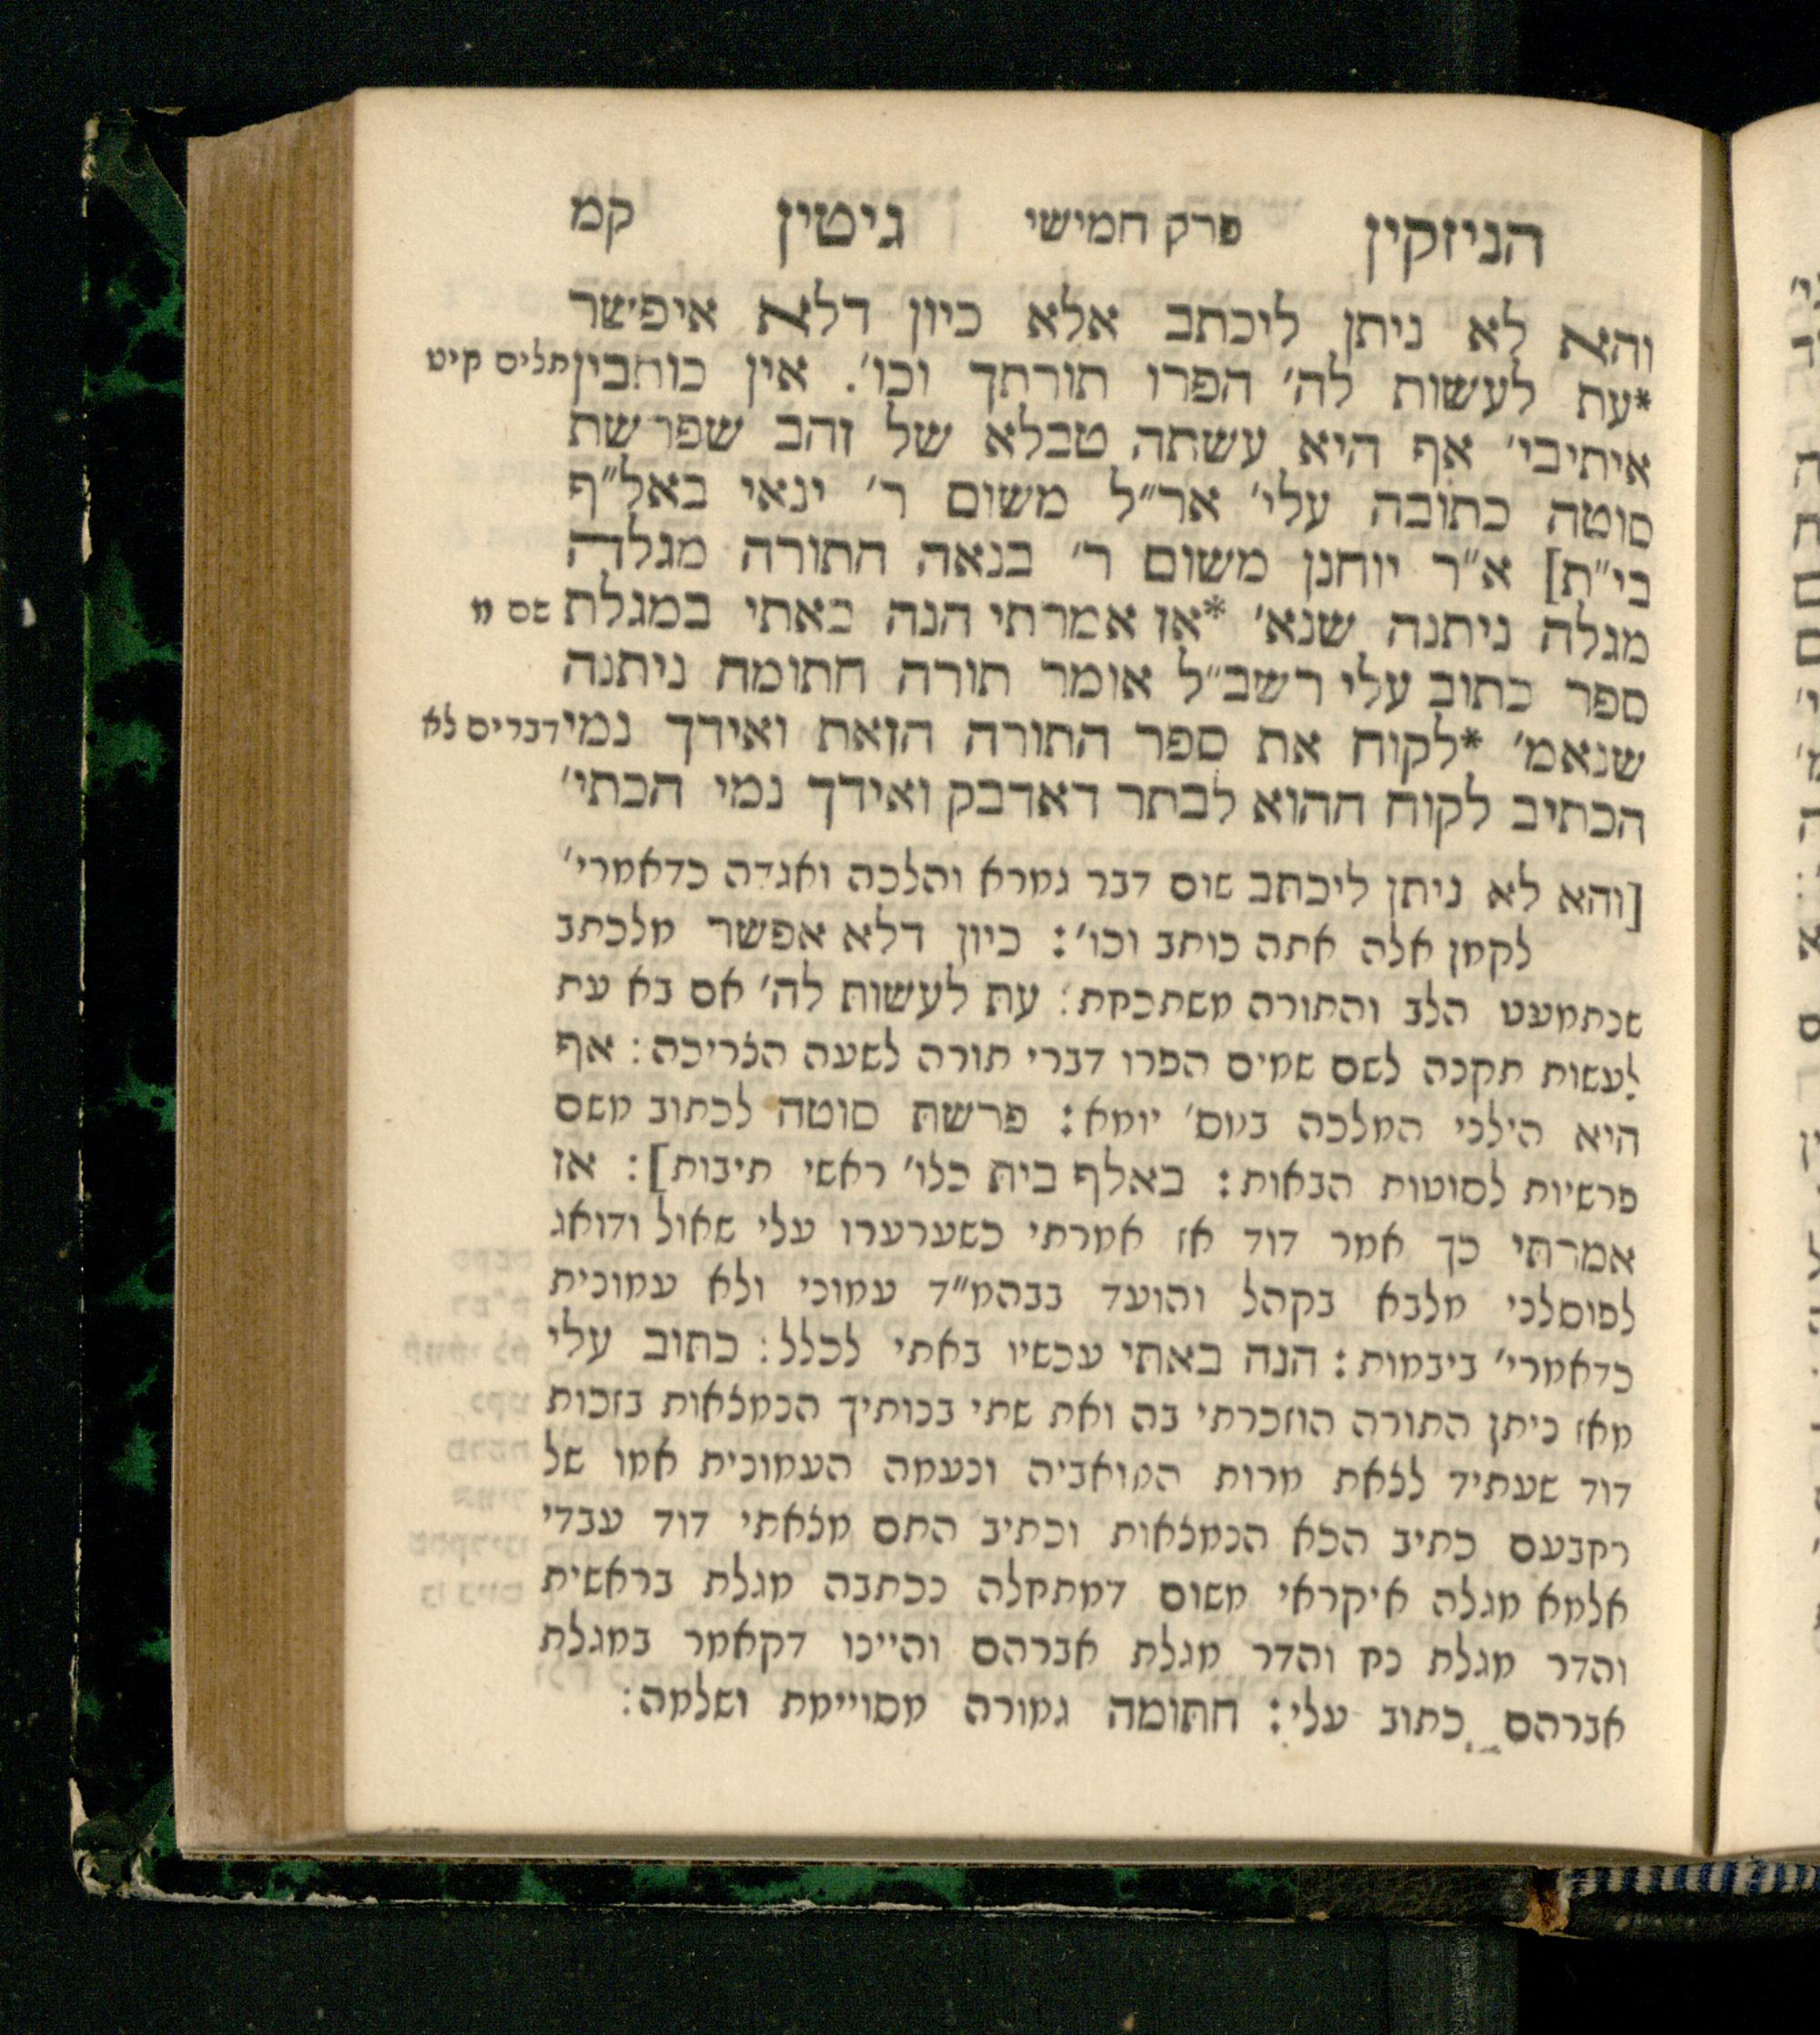 הניזקין פרק חמישי גיטין קמ
והא לא ניתן ליכתב אלא כיון דלא איפשר
*עת לעשות לה׳ הפרו תורתך וכו׳. אין כותבין תלים קיט
איתיבי׳ אף היא עשתה טבלא של זהב שפרשת
סוטה כתובה עלי׳ אר״ל משום ר׳ ינאי באל״ף
בי״ת] א״ר יוחנן משום ר׳ בנאה התורה מגלה
מגלה ניתנה שנא׳ *אז אמרתי הנה באתי במגלת שם מ
ספר כתוב עלי רשב״ל אומר תורה חתומה ניתנה
שנאמ׳ *לקוח את ספר התורה הזאת ואידך נמי דברים לא
הכתיב לקוח ההוא לבתר דאדבק ואידך נמי הכתי׳
[והא לא ניתן ליכתב שום דבר גמרא והלכה ואגדה כדאמרי׳
לקמן אלה אתה כותב וכו׳: כיון דלא אפשר מלכתב
שנתמעט הלב והתורה משתכחת: עת לעשות לה׳ אם בא עת
לעשות תקנה לשם שמים הפרו דברי תורה לשעה הצריכה: אף
היא הילני המלכה במס׳ יומא: פרשת סוטה לכתוב משם
פרשיות לסוטות הבאות: באלף בית כלו׳ ראשי תיבות]: אז
אמרתי כך אמר דוד אז אמרתי כשערערו עלי שאול ודואג
לפוסלני מלבא בקהל והועד בבהמ״ד עמוני ולא עמונית
כדאמרי׳ ביבמות: הנה באתי עכשיו באתי לכלל: כתוב עלי
מאז ניתן התורה הוזכרתי בה ואת שתי בנותיך הנמצאות בזכות
דוד שעתיד לצאת מרות המואביה ונעמה העמונית אמו של
רחבעם כתיב הכא הנמצאות וכתיב התם מצאתי דוד עבדי
אלמא מגלה איקראי משום דמתחלה נכתבה מגלת בראשית
והדר מגלת נח והדר מגלת אברהם והיינו דקאמר במגלת
אברהם כתוב עלי: חתומה גמורה מסויימת ושלמה: